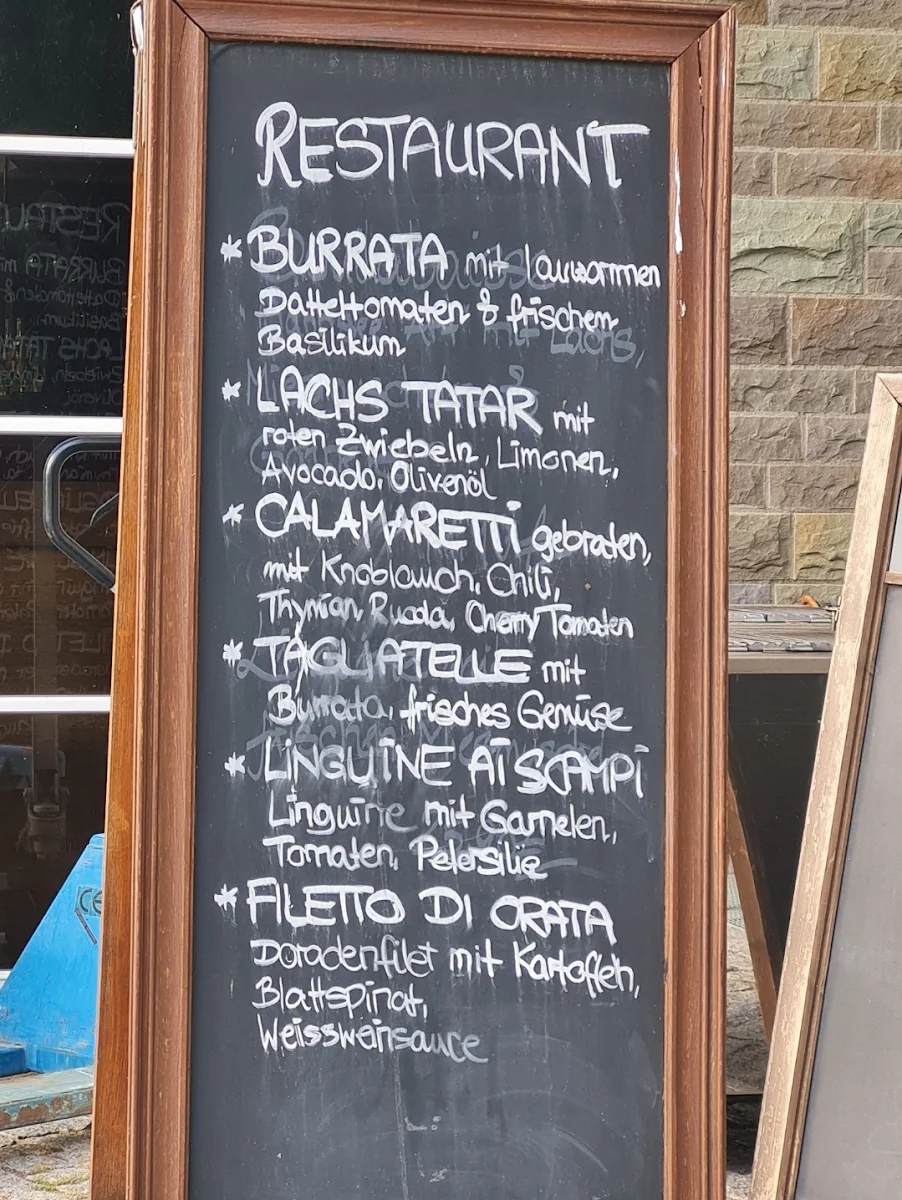 RESTAURANT
* BURRATA mit lauwarmen
Datteltomaten & frischem
Basilikum
* LACHS TATAR mit
roten Zwiebeln, Limonen,
Avocado, Olivenöl
* CALAMARETTI gebraten,
mit Knoblauch, Chili,
Thymian, Rucola, Cherry Tomaten
* TAGLIATELLE mit
Burrata, frisches Gemüse
* LINGUINE AI SCAMPI
Linguine mit Garnelen,
Tomaten, Petersilie
* FILETTO DI ORATA
Doradenfilet mit Kartoffeln,
Blattspinat,
Weissweinsauce